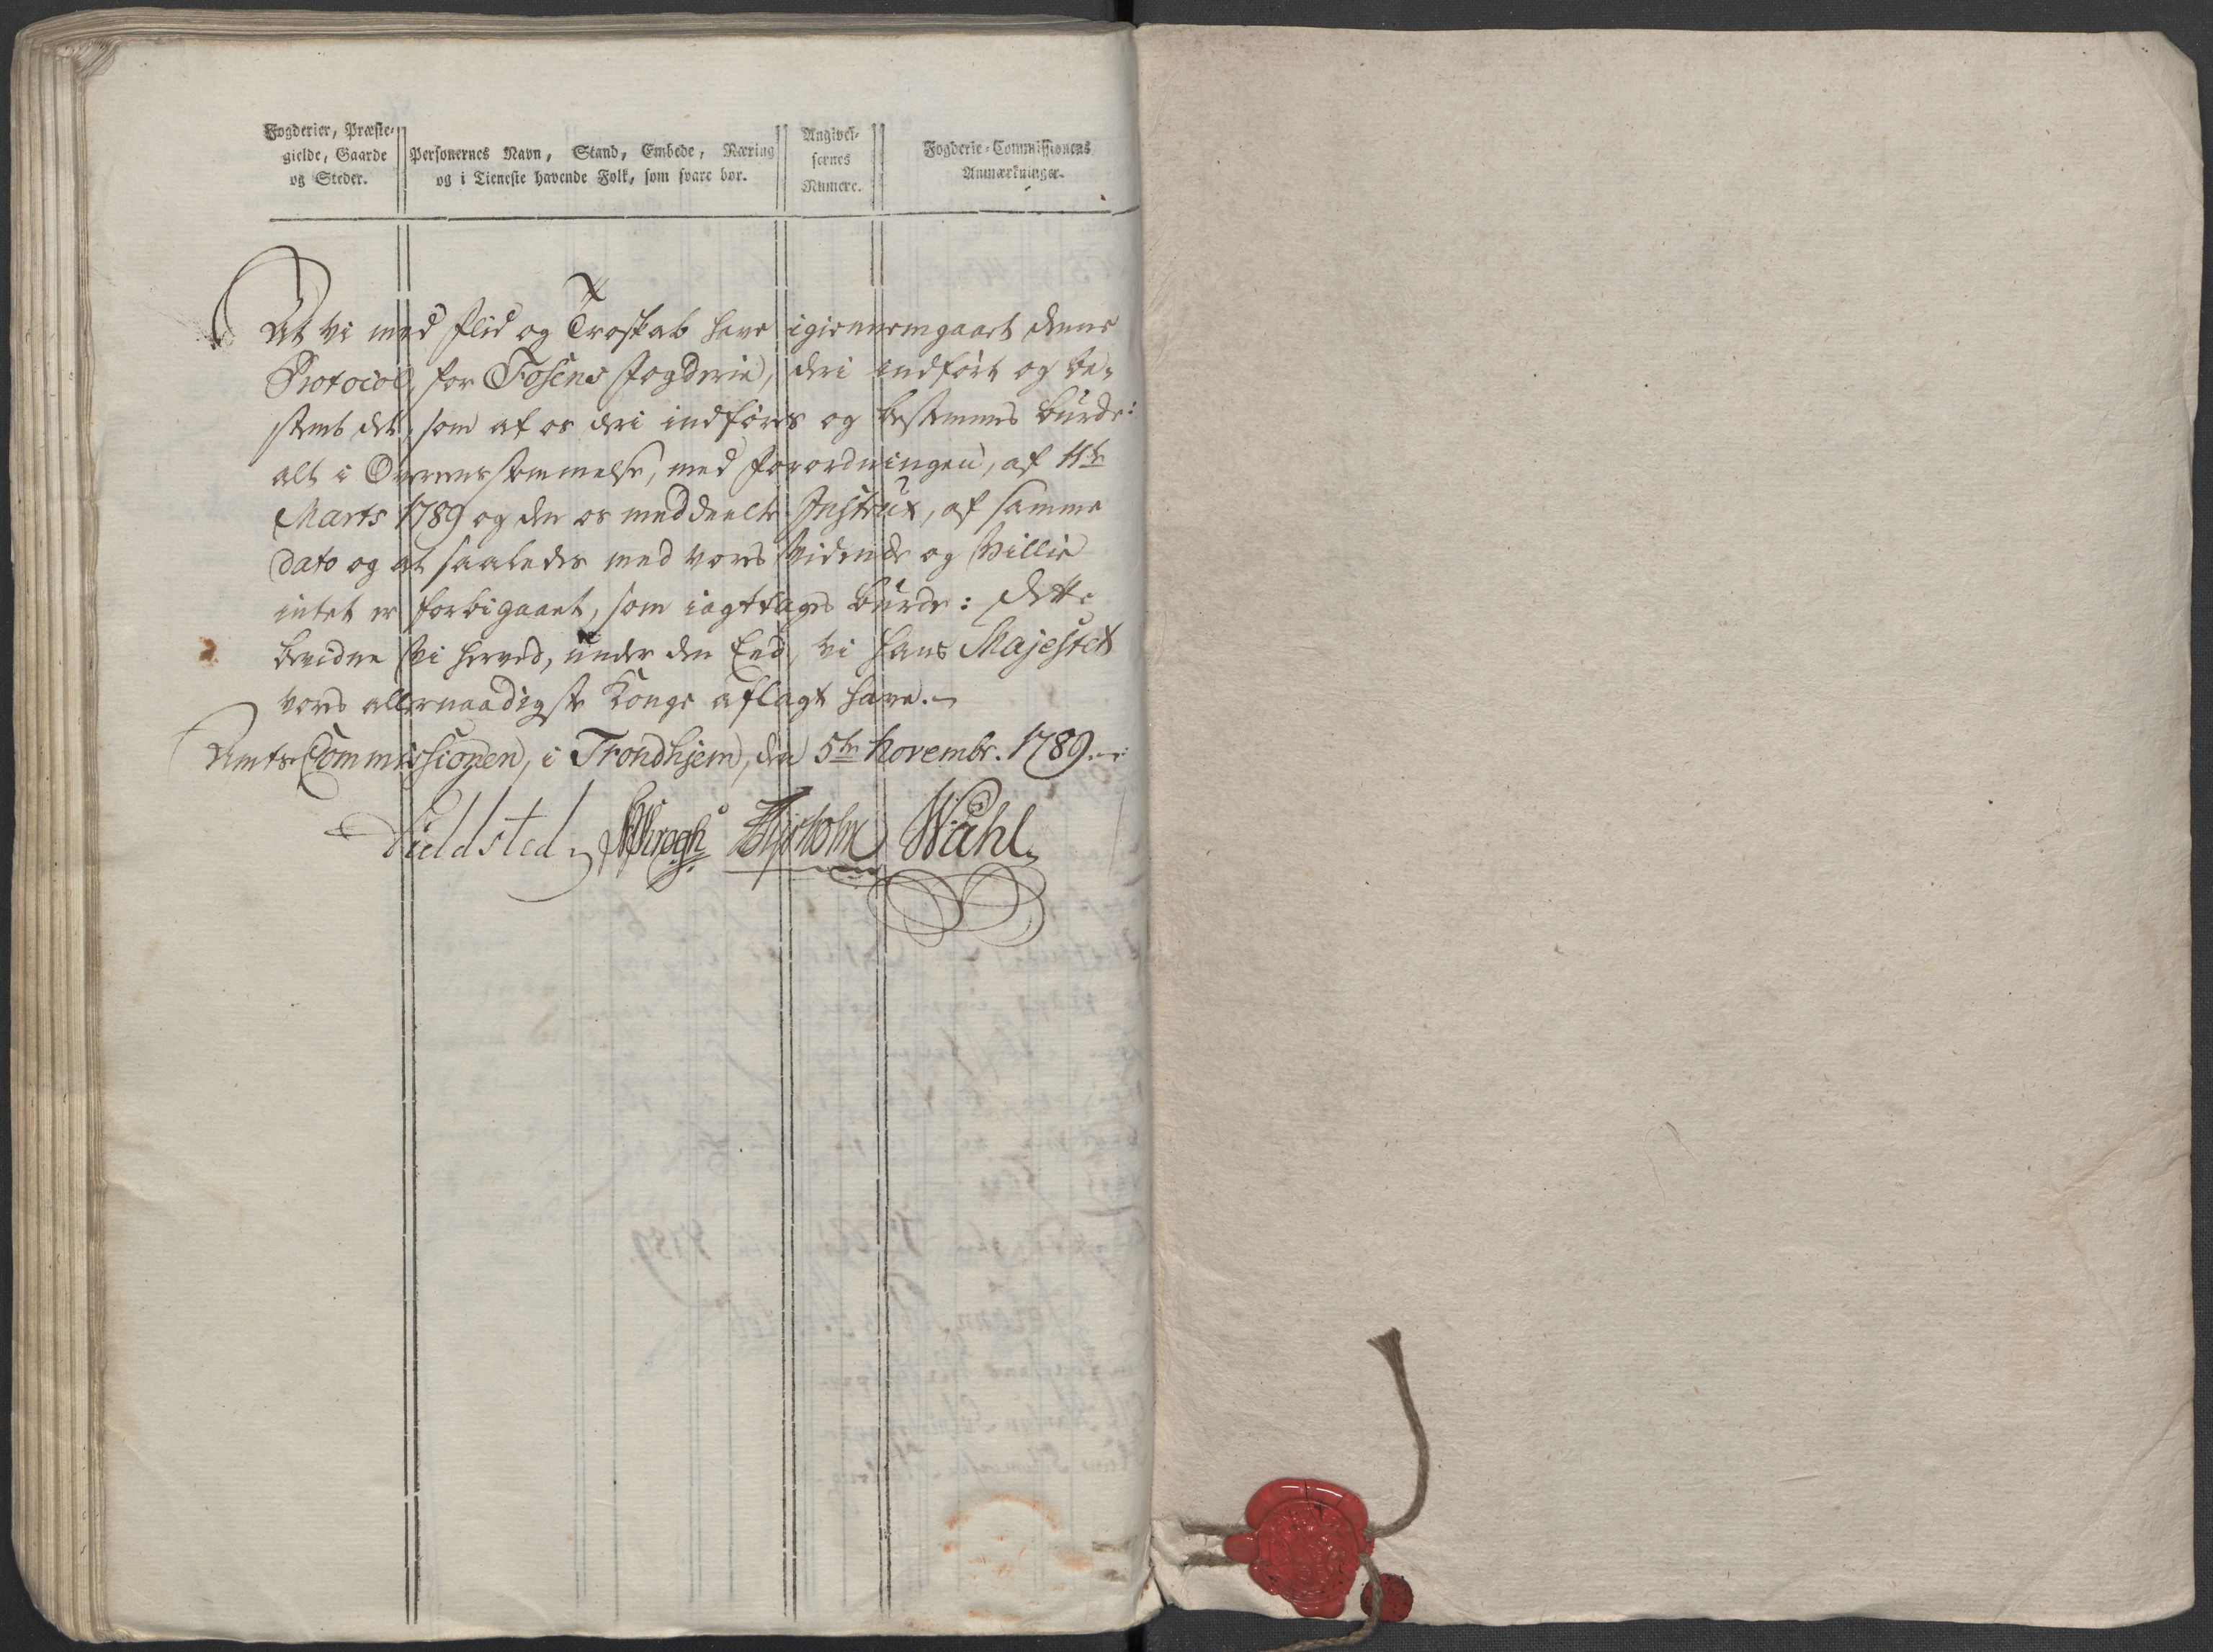 Fogderier, Præste-
gielde, Gaarde
og Steder.
Personernes Navn, Stand, Embede, Næring
og i Tieneste havende Folk, som svare bør.
Angivel-
sernes
Numere.
Fogderie-Commissionens
Anmærkninger.
At vi med Flid og Troskab have igiennemgaaet denne
Protocol, for Fosens Fogderie, deri indført og be-
stemt det, som af os deri indføres og bestemmes burde:
alt i Overensstemmelse, med Forordningen, af 11te
Marts 1789 og den os meddeelte Instrux, af samme
dato og at saaledes med vores Vidende og Villie
intet er forbigaaet, som iagttages burde: Dette
bevidne vi herved, under den Eed, vi Hans Majestet
vores allernaadigste Konge aflagt have.
Amts Commissionen, i Trondhjem, den 5te Novembr. 1789.
Fieldsted Krogh Wahl